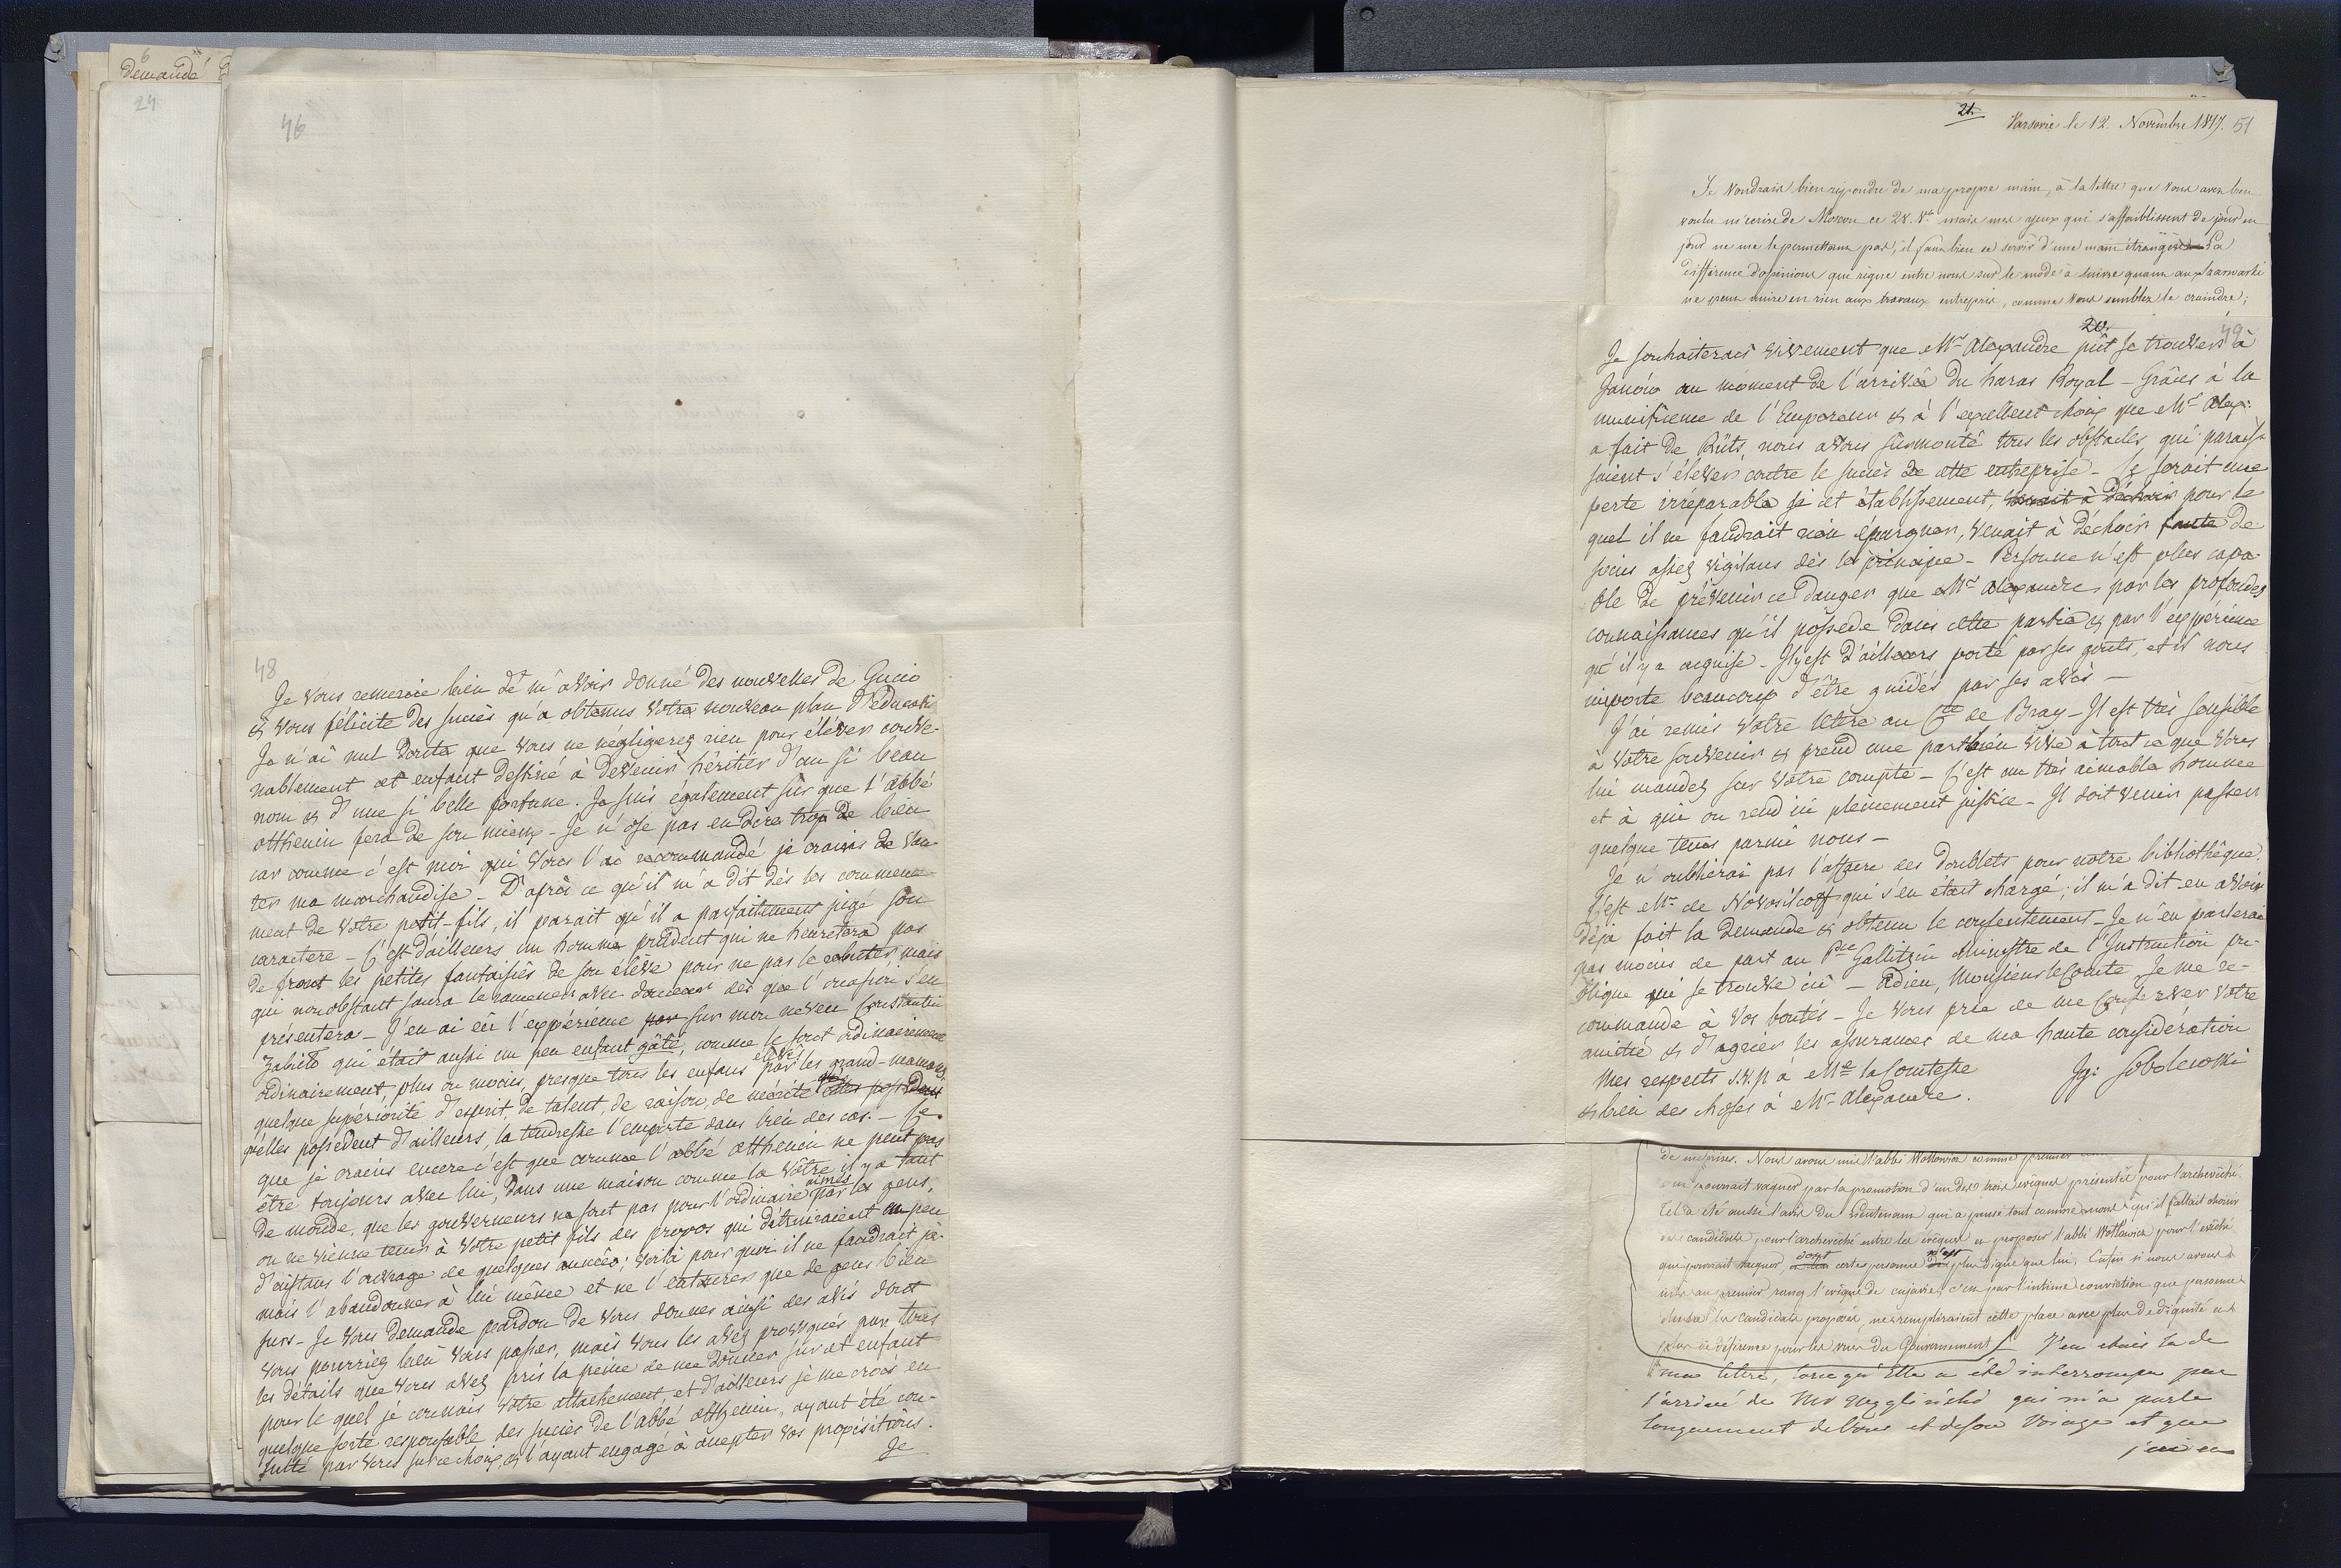 6
demandé
24
46
48
Je vous remercie bien de m'avoir donné des nouvelles de Gucio
& vous félicite des succès qu'a obtenus votre nouveau plan d'éducati
Je n'ai nul doute que vous ne négligerez rien pour élever conve-
nablement cet enfant destiné à devenir héritier d'un si beau
nom & d'une si belle fortune. Je suis également sûr que l'abbé
Otthenin fera de son mieux - Je n'ose pas en dire trop de bien
car comme c'est moi qui vous l'ai recommandé je crains de van-
ter ma marchandise - D'après ce qu'il m'a dit dès les commence-
ment de votre petit-fils, il parait qu'il a parfaitement jugé son
caractere - C'est d'ailleurs un homme prudent qui ne heurtera pas
de front les petites fantaisies de son élève pour ne pas le rebuter, mais
qui nonobstant saura le ramener avec douceur dès que l'occasion s'en
présentera - J'en ai eu l'expérience par sur mon neveu Constantin
Zabiełło qui était aussi un peu enfant gâté, comme le sont ordinairement
ordinairement, plus ou moins, presque tous les enfans élevés par les grand-mamans,
quelque supériorité d'esprit, de talent, de raison, de mérite
qu'elles possedent d'ailleurs, la tendresse l'emporte dans bien des cas. - Ce
que je crains encore c'est que comme l'abbé Otthenin ne peut pas
être toujours avec lui, dans une maison comme la vôtre il y a tant
de monde, que les gouverneurs ne sont pas pour l'ordinaire aimés par les gens,
on ne vienne tenir à votre petit fils des propos qui détruiraient un peu
d'instans l'ouvrage de quelques années; voilà pourquoi il ne faudrait ja-
mais l'abandonner à lui même et ne l'entourer que de gens bien
surs - Je vous demande pardon de vous donner ainsi des avis dont
vous pourriez bien vous passer, mais vous les avez provoqués par tous
les détails que vous avez pris la peine de me donner sur cet enfant
pour le quel je connais votre attachement, et d'ailleurs je me crois en
quelque sorte responsable des succès de l'abbé Otthenin, ayant été con-
sulté par vous sur ce choix, & l'ayant engagé à accepter vos propositions.
Je
21.
Varsovie le 12. Novembre 1817. 51
Je voudrais bien répondre de ma propre main, à la lettre que vous avez bien
voulu m'écrire de Moscou ce 28. 8bre mais mes yeux qui s'affaiblissent de jour en
jour ne me le permettans pas, il faut bien se servir d'une main étrangère La
différence d'opinions qui règne entre nous sur le mode à suivre quant au
ne peut nuire en rien aux travaux entrepris, comme vous semblez le craindre;
20. 49
Je souhaiterais vivement que Mr Alexandre pût se trouver à
Janów au moment de l'arrivée du haras Royal - Grâces à la
munificence de l'Empereur & à l'excellent choix que Mr Alex:
a fait de Rüts, nous avons surmonté tous les obstacles qui parais-
saient s'élever contre le succès de cette entreprise - Ce serait une
perte irréparable si cet établissement, venait à déchoir pour le
quel il ne faudrait rien épargner, venait à déchoir faute de
soins assez vigilans dès le principe - Personne n'est plus capa-
ble de prévenir ce danger que Mr Alexandre par les profondes
connaissances qu'il possede dans cette partie & par l'expérience
qu'il y a acquise - Il y est d'ailleurs porté par ses goûts, et il nous
importe beaucoup d'être guidés par ses avis -
J'ai remis votre lettre au Cte de Bray - Il est très sensible
à votre souvenir & prend une part bien vive à tout ce que vous
lui mandez sur votre compte - C'est un très aimable homme
et à qui on rend ici pleinement justice - Il doit venir passer
quelque tems parmi nous -
Je n'oublierai pas l'affaire des doublets pour notre bibliothèque.
C'est Mr de Novosilcoff qui s'en était chargé; il m'a dit en avoir
déjà fait la demande & obtenu le consentement - Je n'en parlerai
pas moins de part au Pce Gallitzin Ministre de l'Instruction pu-
blique qui se trouve ici - Adieu, Monsieur le Comte, Je me re-
commande à vos bontés - Je vous prie de me conserver votre
amitié & d'agréer les assurances de ma haute considération
Mes respects s.v.p à Me la Comtesse Ig: Sobolewski
& bien des choses à Mr Alexandre.
de méprises. Nous avons mis l'abbé Wołłowicz comme premier
pourrait vaquer par la promotion d'un des trois évêques présentés pour l'archevêché.
Tel a été aussi l'avis du Lieutenant qui a pensé tout comme nous qu'il fallait choisir
les candidats pour l'archevêché entre les évêques et proposer l'abbé Wołłowicz pour l'évêché
qui pourrait vaquer, dont certes personne n'est plus digne que lui. Enfin si nous avons
mis au premier rang l'évêque de Cujavie, c'est par l'intime conviction que personne
d'entre les candidats proposés, ne remplirait cette place avec plus de dignité et
plus de déférence pour les vues du Gouvernement J'en étais là de
ma lettre, lorsqu'Elle a été interrompue par
l'arrivé de Mr qui m'a parlé
longuement de Vous et de son voiage et que
j'ai eu